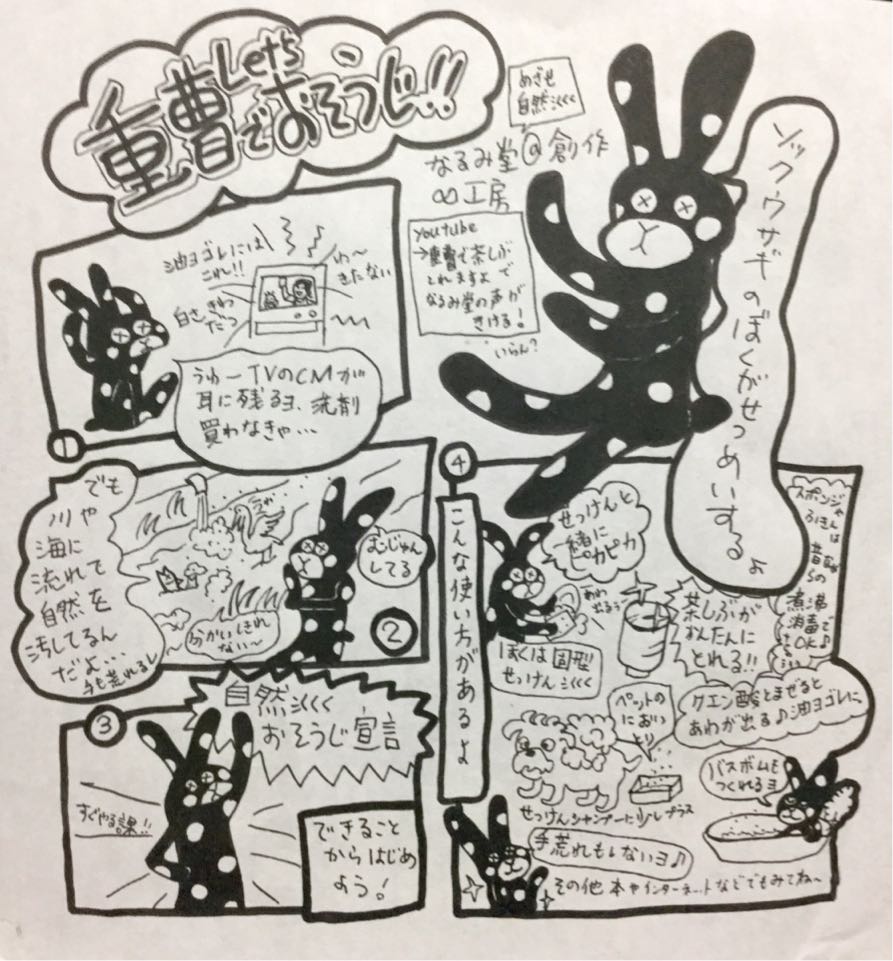 Let's
重曹でおそうじ!!
めざせ
自然派くくく
なるみ堂@創作
∞工房
youtube
→重曹で茶しぶ
とれますよ で
なるみ堂の声が
きける!
いらん?
ソックウサギのぼくがせつめいするよ
油ヨゴレには
これ!!
わ〜
きたない
白さ きわ
だつ
うわーTVのCMが
耳に残るヨ、洗剤
買わなきゃ…
①
でも
川や
海に
流れて
自然を
汚してるん
だよ…
手も荒れるし
むじゅん
してる
ぶんかいしきれ
ない〜
②
③
自然くくく
おそうじ宣言
すぐやる課!!
できること
からはじめ
よう!
④
こんな使い方があるよ
せっけんと
一緒に
ピカピカ
あわ
出るぅ〜
ぼくは固形
せっけんくくく
茶しぶが
かんたんに
とれる!!
スポンジや
ふきんは
昔ながらの
煮沸
消毒で
OK♪
ペットの
におい
とり
せっけんシャンプーに少しプラス
クエン酸とまぜると
あわが出る♪油ヨゴレに、
バスボムも
つくれるヨ
手荒れもしないヨ♪
その他 本やインターネットなどでもみてね〜